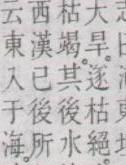 大旱。遂枯絕
枯竭。其後水
西漢己後所
云東入于海。